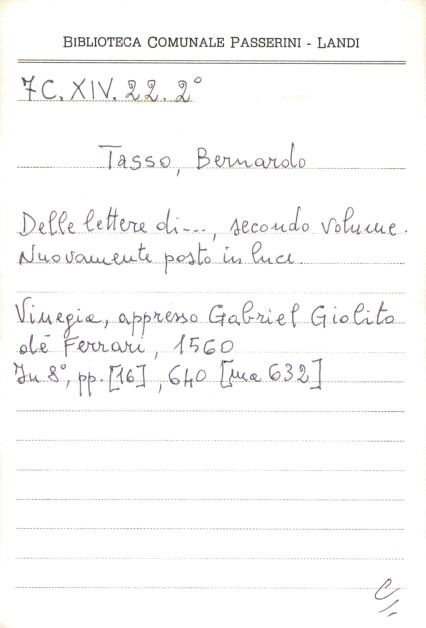 BIBLIOTECA COMUNALE PASSERINI - LANDI
7C. XIV. 22. 2°
Tasso, Bernardo
Delle lettere di---, secondo volume.
Nuovamente posto in luce.
Vinegia, appresso Gabriel Giolito
dè Ferrari, 1560
In 8°, pp. [16], 640 [ma 632]